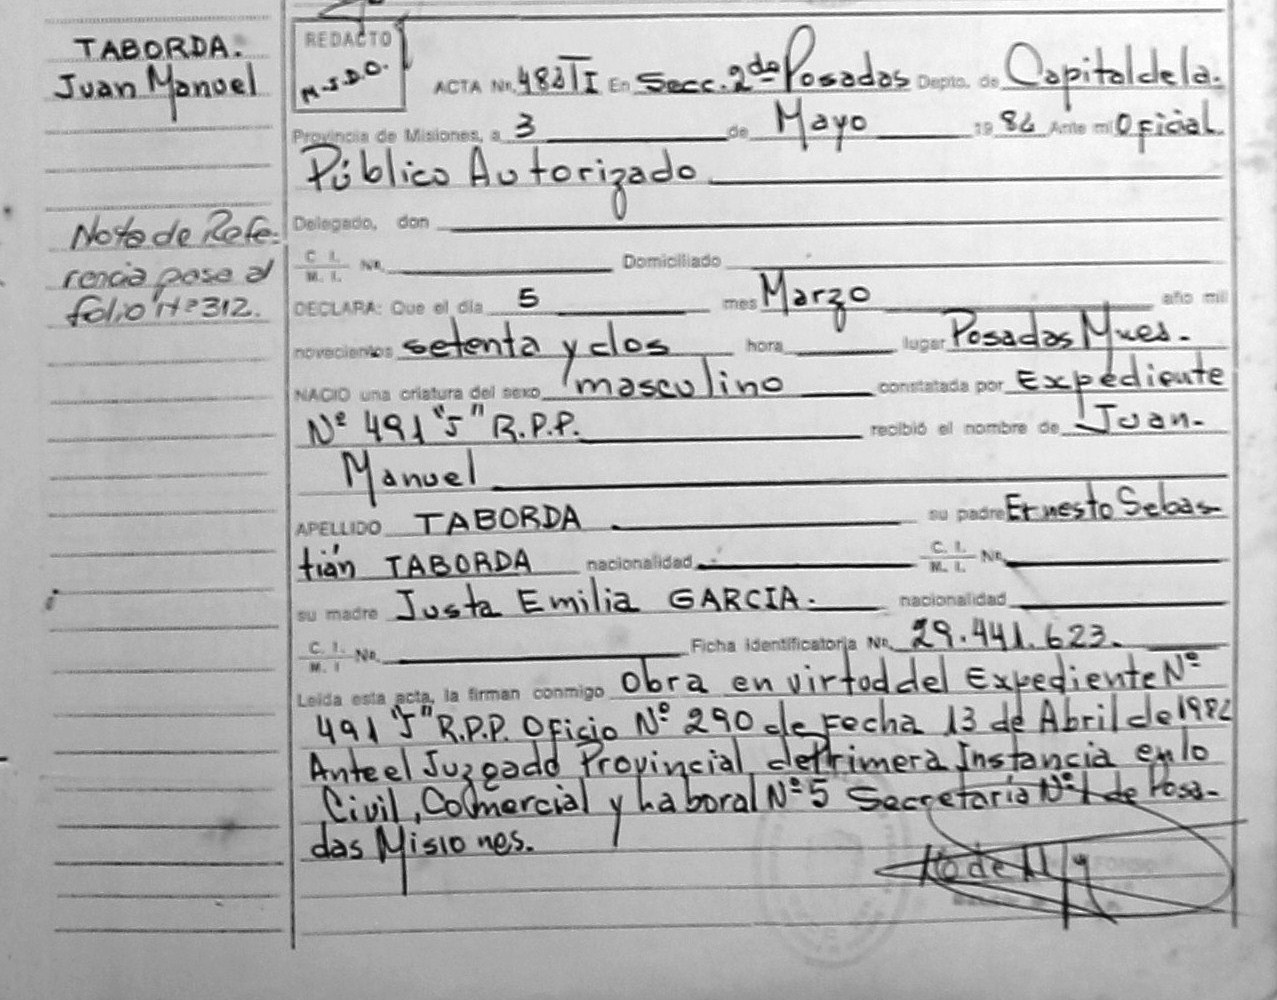 TABORDA.
Juan Manuel
Nota de Refe-
rencia pase al
folio Nº 312.
REDACTO
M.S.D.O.
ACTA Nr. 482 T I En Secc. 2da Posadas Depto. de Capital de la.
Provincia de Misiones, a 3 de Mayo 1982 Ante mí Oficial
Público Autorizado
Delegado, don
C. I. / M. I. Nr. Domiciliado
DECLARA: Que el día 5 mes Marzo año mil
novecientos setenta y dos hora lugar Posadas Mnes.
NACIO una criatura del sexo masculino constatada por Expediente
Nº 491 "J" R.P.P. recibió el nombre de Juan-
Manuel
APELLIDO TABORDA su padre Ernesto Sebas-
tián TABORDA nacionalidad C. I. / M. I. Nr.
su madre Justa Emilia GARCIA. nacionalidad
C. I. / M. I Nr. Ficha identificatoria Nr. 29.441.623.
Leída esta acta, la firman conmigo Obra en virtod del Expediente Nº
491 "J" R.P.P. Oficio Nº 290 de Fecha 13 de Abril de 1982
Ante el Juzgado Provincial de Primera Instancia en lo
Civil, Comercial y Laboral Nº 5 Secretaría Nº 1 de Posa-
das Misiones.